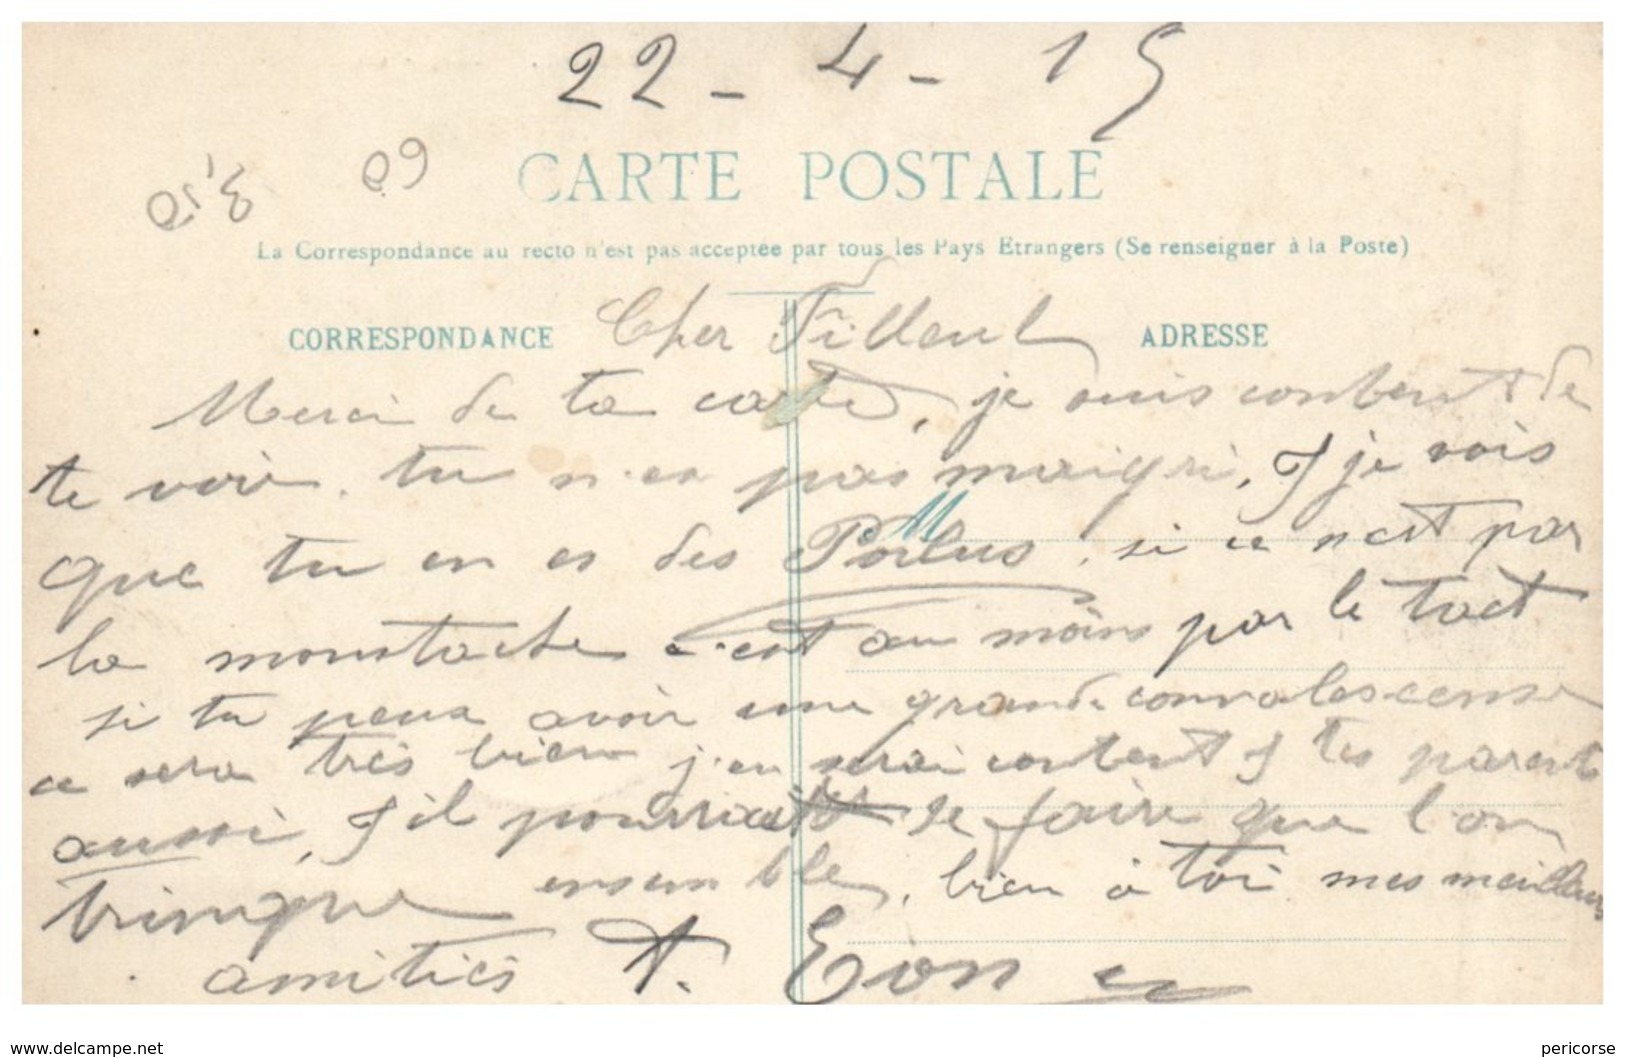 22 - 4 - 15
69
CARTE POSTALE
La Correspondance au recto n'est pas acceptée par tous les Pays Etrangers (Se renseigner à la Poste)
CORRESPONDANCE
ADRESSE
Cher Filleul
Merci de ta carte, je suis content de
te voir, tu n'es pas maigri, & je vois
que tu en es des Poilus, si ce n'est par
la moustache c'est au moins par le tact
si tu peux avoir une grande convalescense
ce sera très bien j'en serai content & tes parents
aussi, & il pourrait se faire que l'on
trinque ensemble, bien à toi mes meilleurs
amitiés A. Eon
www.delcampe.net
pericorse